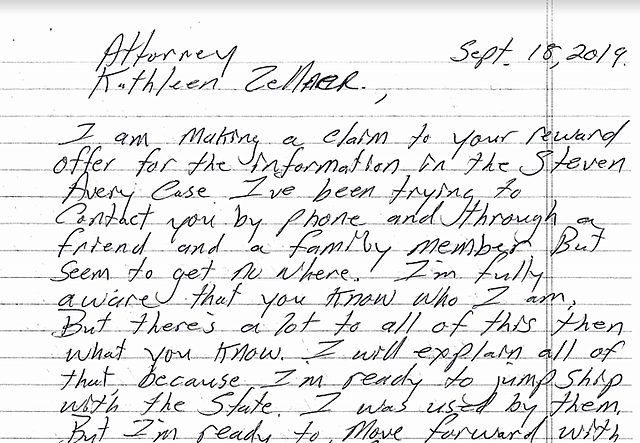 Attorney Sept. 18, 2019.
Kathleen Zellner,
I am making a claim to your reward
offer for the information in the Steven
Avery Case I've been trying to
Contact you by phone and through a
friend and a family member But
Seem to get no where. I'm fully
aware that you know who I am,
But there's a lot to all of this then
what you know. I will explain all of
that, because I'm ready to jump ship
with the State. I was used by them.
But I'm ready to move forward with